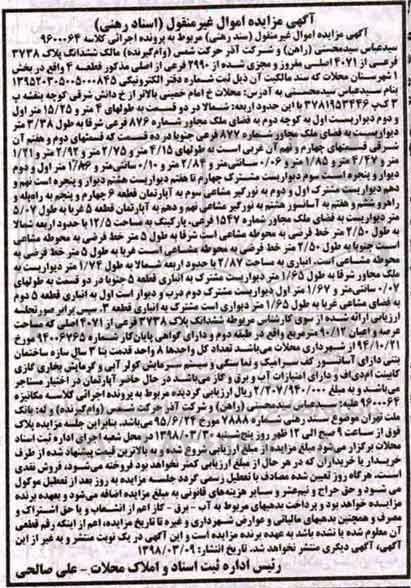 آگهی مزایده اموال غیر منقول (اسناد رهنی)
آگهی مزایده اموال غیرمنقول (سند رهنی) مربوط به پرونده اجرائی کلاسه ۹۶۰۰۰۶۴
سیدعباس سیدمحسنی (راهن) و شرکت آذر حرکت شمس (وام‌گیرنده) مالک ششدانگ پلاک ۳۷۳۸
فرعی از ۴۰۷۱ اصلی مفروز و مجزی شده از ۲۹۹۰ فرعی از اصلی مذکور قطعه ۴ واقع در بخش
۱ شهرستان محلات که سند مالکیت آن ذیل ثبت شماره دفتر الکترونیکی ۱۳۹۵۲۰۳۰۵۰۰۵۰۰۰۸۴۵
بنام سیدعباس سیدمحسنی به آدرس: محلات خ امام خمینی بالاتر از خ دانش شرقی کوچه بنفشه پ
۳ ک‌پ ۳۷۸۱۹۵۳۴۴۶ با این حدود اربعه: شمالا در دو قسمت به طولهای ۴ متر و ۱۵/۲۵ متر اول
و دوم دیواریست اول به کوچه دوم به فضای ملک مجاور شماره ۸۷۶ فرعی شرقا به طول ۳/۳۸ متر
دیواریست به فضای ملک مجاور شماره ۸۷۷ فرعی جنوبا در ده قسمت که قسمتهای دوم و هفتم آن
شرقی قسمتهای چهارم و نهم آن غربی است به طولهای ۴/۱۵ متر و ۲/۷۵ متر و ۲/۹۲ متر و ۱/۲۱
متر و ۴/۴۷ متر و ۱/۸۵ متر و ۰/۰۶ سانتی‌متر و ۲/۸۴ متر و ۰/۱۰ سانتی‌متر و ۱/۸۶ متر اول و دوم
دیوار و پنجره است سوم دیواریست مشترک چهارم تا هفتم دیواریست هشتم دیوار و پنجره است نهم و
دهم دیواریست مشترک اول و دوم به نورگیر مشاعی سوم به آپارتمان قطعه ۶ چهارم و پنجم به راه‌پله و
راهرو ششم و هفتم به آسانسور هشتم به نورگیر مشاعی نهم و دهم به آپارتمان قطعه ۵ غربا به طول ۵/۰۷
متر دیواریست به فضای ملک مجاور شماره ۱۵۴۷ فرعی. پارکینگ به مساحت ۱۲/۵ با حدود اربعه شمالا
به طول ۲/۵۰ متر خط فرضی به محوطه مشاعی است شرقا به طول ۵ متر خط فرضی به محوطه مشاعی
است جنوبا به طول ۲/۵۰ متر خط فرضی به محوطه مشاعی است غربا به طول ۵ متر خط فرضی به
محوطه مشاعی است. انباری به مساحت ۲/۸۷ با حدود اربعه شمالا به طول ۱/۷۴ متر دیواریست به
ملک مجاور شرقا به طول ۱/۶۵ متر دیواریست مشترک به انباری قطعه ۵ جنوبا در دو قسمت به طولهای
۰/۰۷ سانتی‌متر و ۱/۶۷ متر اول دیواریست مشترک دوم درب و دیوار است اول به انباری قطعه ۵ دوم
به فضای مشاعی غربا به طول ۱/۶۵ متر دیواری است مشترک به انباری قطعه ۳. سپس برابر صورتجلسه
ارزیابی ارائه شده از سوی کارشناس مربوطه ششدانگ پلاک ۳۷۳۸ فرعی از ۴۰۷۱ اصلی که مساحت
عرصه و اعیان ۹۰/۱۲ مترمربع واقع در طبقه دوم و دارای گواهی پایان‌کار شماره ۹۴۰۰۶۷۶۵ مورخ
۹۴/۱۰/۲۱ از شهرداری محلات می‌باشد. تعداد کل واحدها ۸ واحد قدمت بنا ۳ سال سازه ساختمان
بتنی دارای آسانسور کف سرامیک و نما سنگی و سیستم سرمایش کولر آبی و گرمایش بخاری گازی
کابینت ام‌دی‌اف و دارای امتیازات آب و برق و گاز می‌باشد در حال حاضر آپارتمان در اختیار مستاجر
می‌باشد و به مبلغ ۲/۳۰۷/۹۴۰/۰۰۰ ریال ارزیابی گردیده مربوط به پرونده اجرائی کلاسه مکانیزه
۹۶۰۰۰۶۴ علیه: سیدعباس سیدمحسنی (راهن) و شرکت آذر حرکت شمس (وام‌گیرنده) و له: بانک
ملت تهران موضوع سند رهنی شماره ۷۸۸۸ مورخ ۹۵/۶/۲۴ می‌باشد. بنابراین جلسه مزایده پلاک
فوق از ساعت ۹ صبح الی ۱۲ ظهر روز پنج‌شنبه ۱۳۹۸/۰۳/۳۰ در محل شعبه اجرای اداره ثبت اسناد
محلات برگزار می‌شود مبلغ مزایده از مبلغ ارزیابی شروع شده و به بالاترین قیمت پیشنهاد شده از طرف
خریدار یا خریداران که در هر حال از مبلغ ارزیابی کمتر نخواهد بود فروخته می‌شود، فروش نقدی
است، هرگاه روز تعیین شده مصادف با تعطیل رسمی گردد جلسه مزایده به روز بعد از تعطیل موکول
می شود و حق حراج و نیم‌عشر و سایر هزینه‌های قانونی به مبلغ مزایده اضافه می‌شود و بعهده برنده
مزایده خواهد بود و پرداخت بدهیهای مربوط به آب - برق - گاز اعم از انشعاب و یا حق اشتراک و
مصرف و همچنین بدهیهای مالیاتی و عوارض شهرداری و غیره تا تاریخ مزایده، اعم از اینکه رقم قطعی
آن معلوم شده یا نشده باشد به عهده برنده مزایده است و این آگهی در یک نوبت منتشر و به غیر از این
آگهی، آگهی دیگری منتشر نخواهد شد. تاریخ انتشار: ۱۳۹۸/۰۳/۰۹
رئیس اداره ثبت اسناد و املاک محلات - علی صالحی